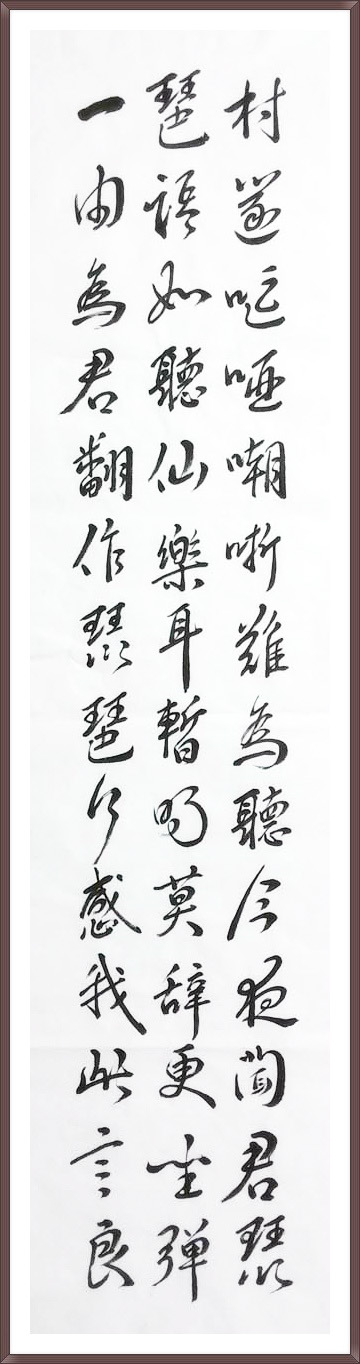 村邃呕哑嘲哳難為聽今夜聞君琵
琶語如聽仙樂耳暫明莫辞更坐弹
一曲為君翻作琵琶行感我此言良